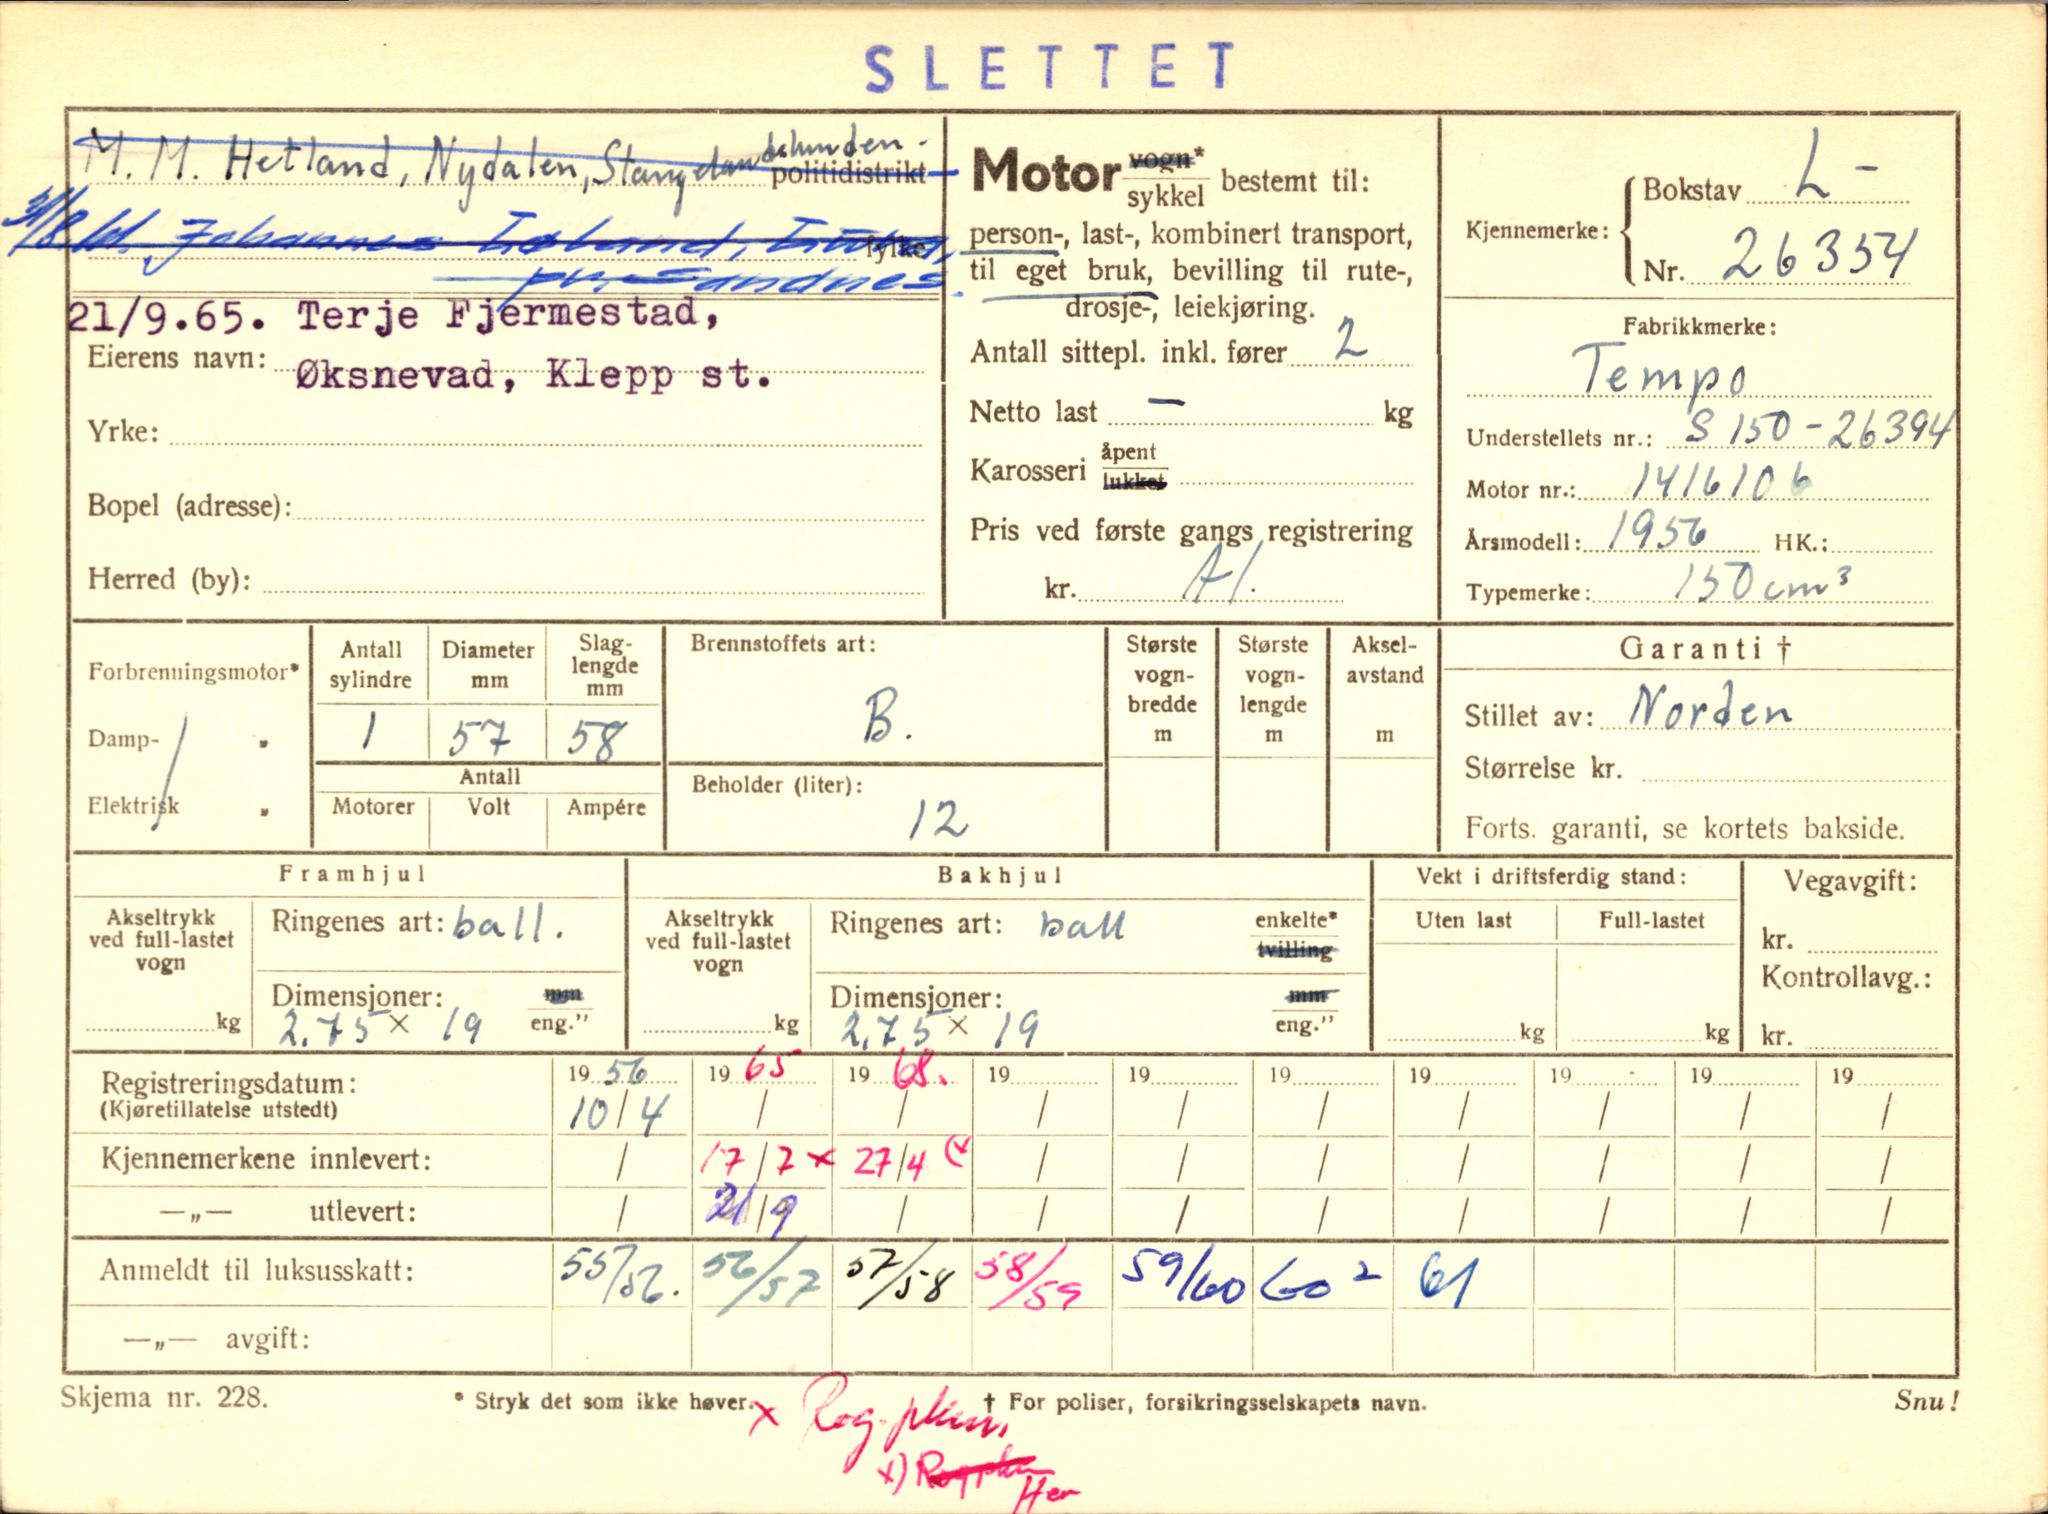 SLETTET
M. M. Hetland, Nydalen, Stangelandslunden.
politidistrikt
Johannes
fylke
pr. Sandnes.
21/9.65. Terje Fjermestad,
Eierens navn: Øksnevad, Klepp st.
Yrke:
Bopel (adresse):
Herred (by):
Motor vogn*
sykkel bestemt til:
person-, last-, kombinert transport,
til eget bruk, bevilling til rute-,
drosje-, leiekjøring.
Antall sittepl. inkl. fører 2
Netto last — kg
Karosseri åpent
lukket
Pris ved første gangs registrering
kr. A/.
Kjennemerke: Bokstav L-
Nr. 26354
Fabrikkmerke:
Tempo
Understellets nr.: S 150-26394
Motor nr.: 1416106
Årsmodell: 1956 HK.:
Typemerke: 150 cm³
Forbrenningsmotor*
Damp- "
Elektrisk "
Antall sylindre
Diameter mm
Slag-lengde mm
1 57 58
Antall
Motorer Volt Ampére
Brennstoffets art:
B.
Beholder (liter):
12
Største vogn-bredde m
Største vogn-lengde m
Aksel-avstand m
Garanti †
Stillet av: Norden
Størrelse kr.
Forts. garanti, se kortets bakside.
Framhjul
Akseltrykk ved full-lastet vogn
kg
Ringenes art: ball.
Dimensjoner: mm
2.75 x 19 eng."
Bakhjul
Akseltrykk ved full-lastet vogn
kg
Ringenes art: ball enkelte*
tvilling
Dimensjoner: mm
2.75 x 19 eng."
Vekt i driftsferdig stand:
Uten last Full-lastet
kg kg
Vegavgift:
kr.
Kontrollavg.:
kr.
Registreringsdatum: 1956 1965 1968. 19 19 19 19 19 19 19
(Kjøretillatelse utstedt) 10/4 / / / / / / / / /
Kjennemerkene innlevert: / 17/7 x 27/4 (x / / / / / / /
—„— utlevert: / 21/9 / / / / / / / /
Anmeldt til luksusskatt: 55/56. 56/57 57/58 58/59 59/60 60² 61
—„— avgift:
Skjema nr. 228. * Stryk det som ikke høver. † For poliser, forsikringsselskapets navn. Snu!
x
x)
Her